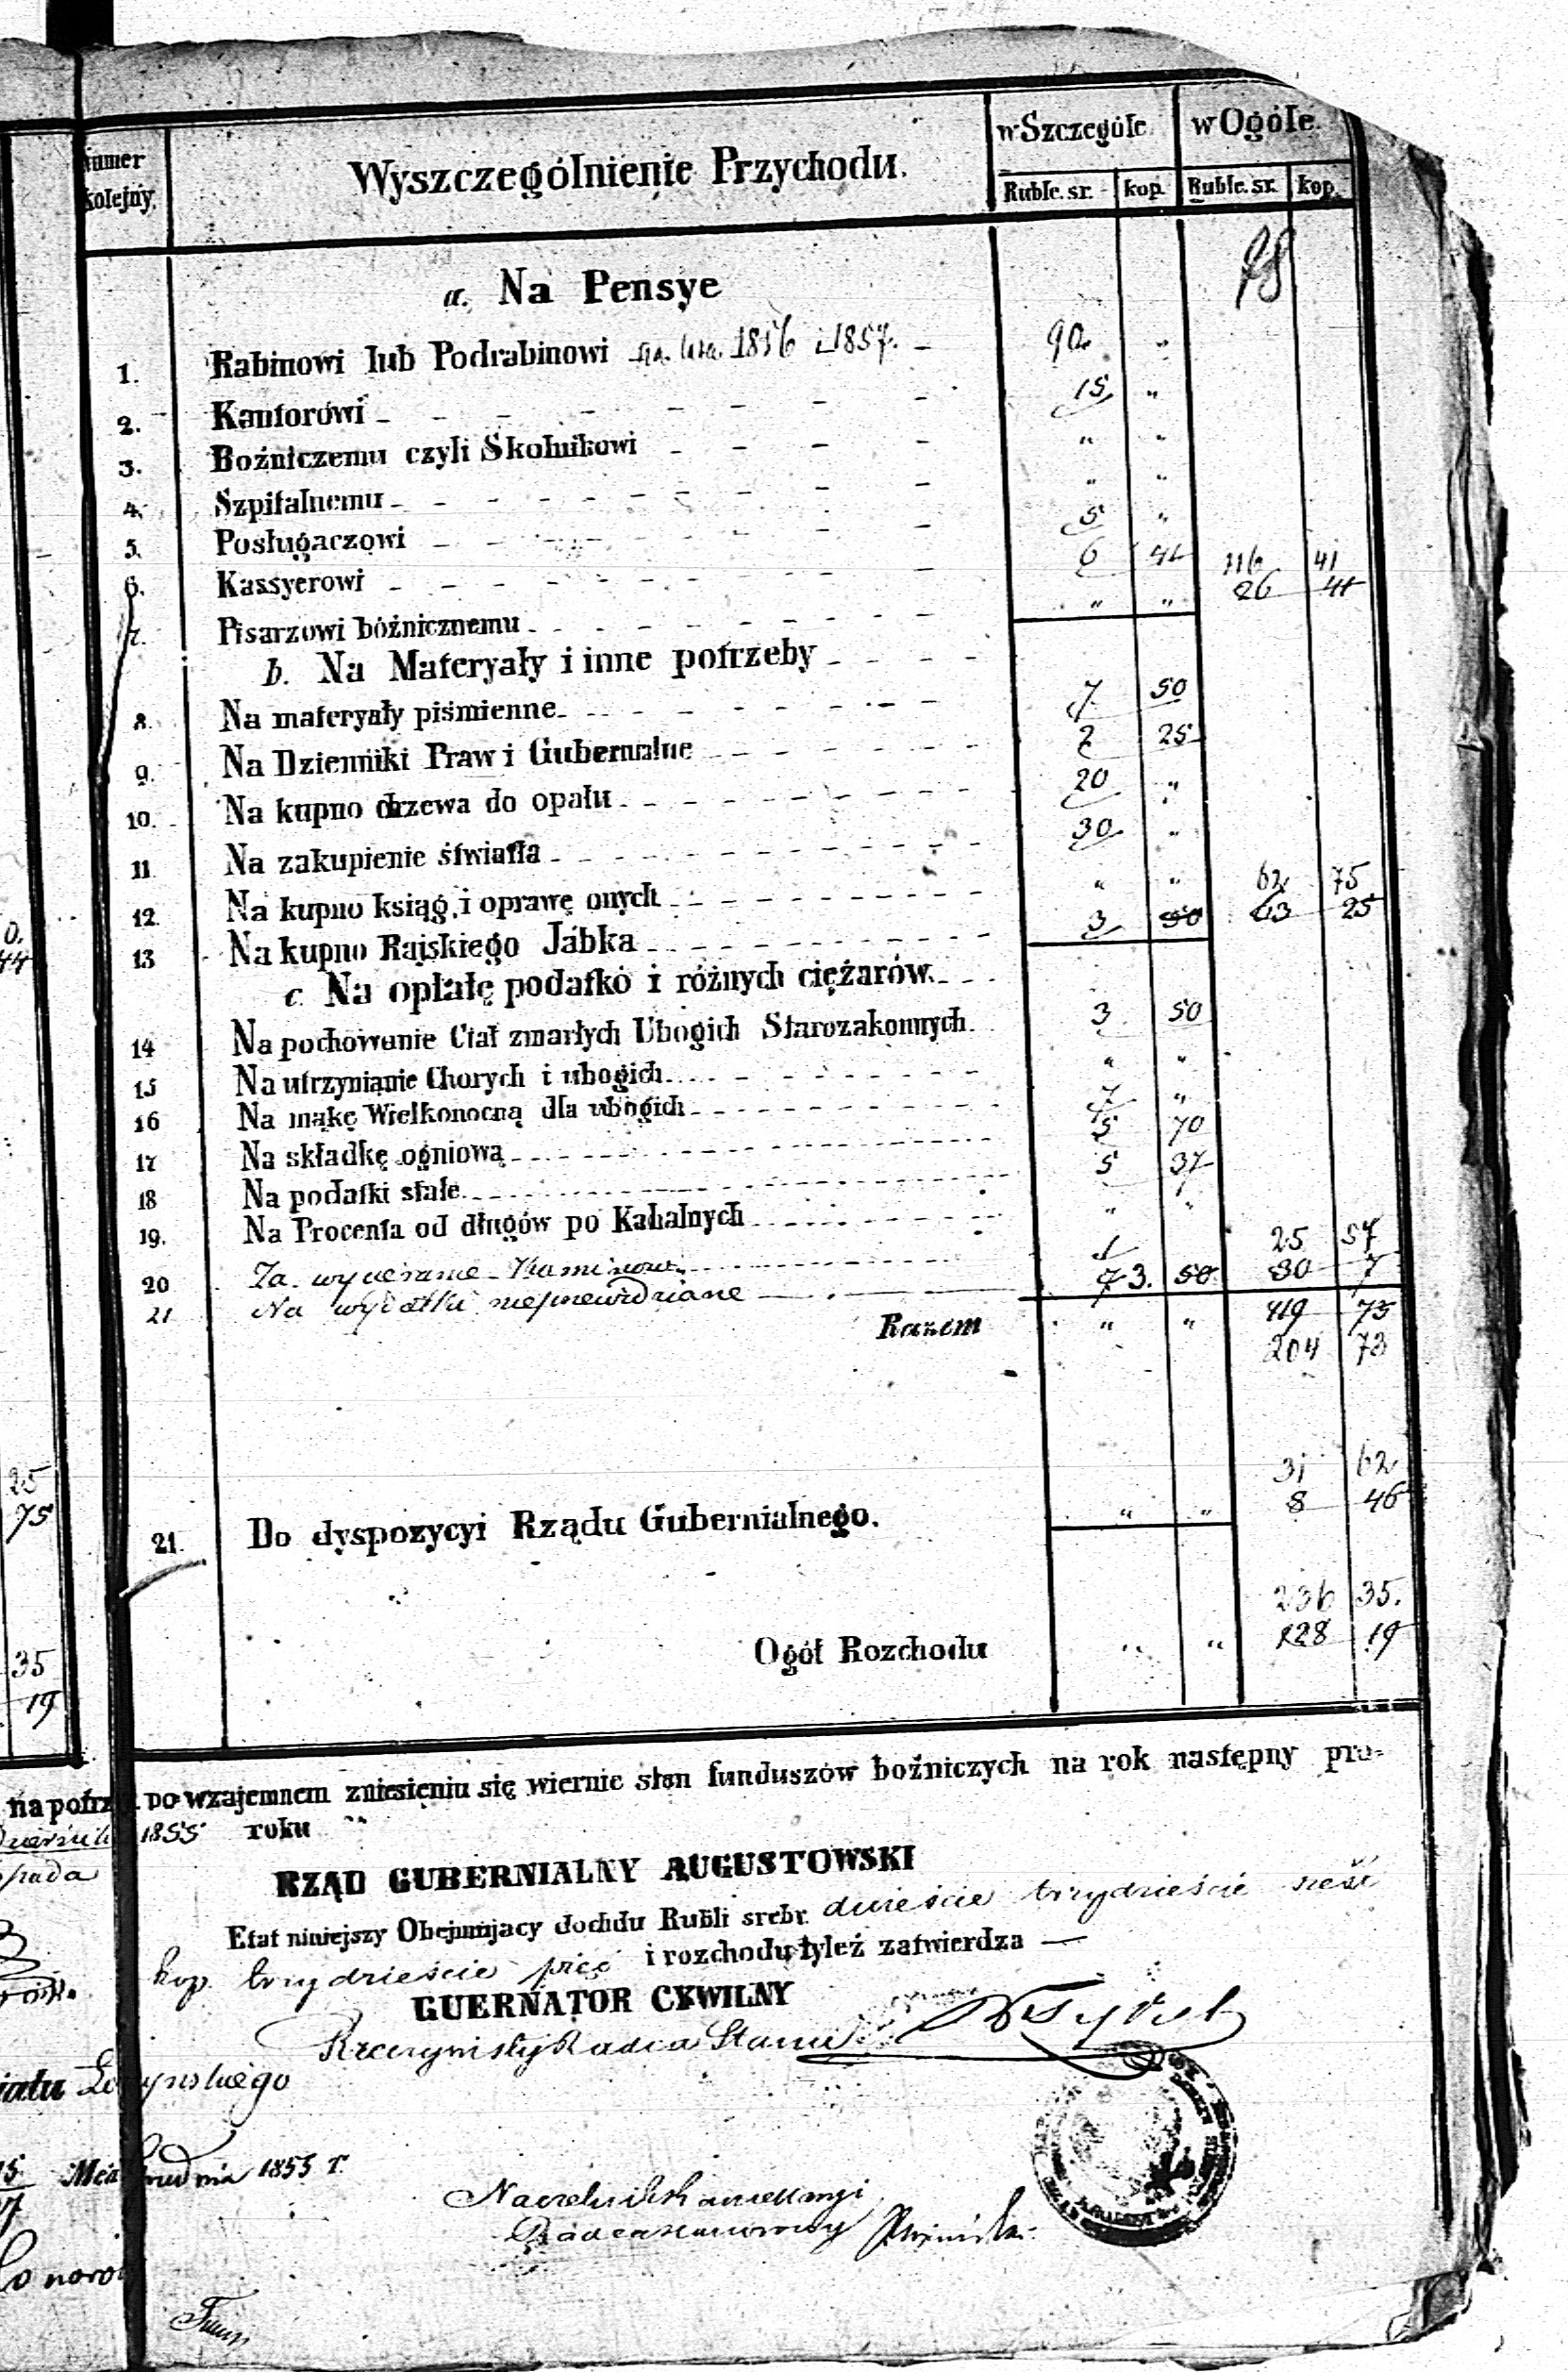 w Szczególe. w Ogóle.
Numer kolejny. Wyszczególnienie Przychodu. Ruble. sr. kop. Ruble. sr. kop.
98
a. Na Pensye
1. Rabinowi lub Podrabinowi na lata 1856 i 1857. 90. "
2. Kantorowi 15 "
3. Bożniczemu czyli Skolnikowi " "
4. Szpitalnemu " "
5. Posługaczowi 5 "
6. Kassyerowi 6 41 116 41
7. Pisarzowi bóżnicznemu " " 26 41
b. Na Materyały i inne potrzeby
8. Na materyały piśmienne 7 50
9. Na Dzienniki Praw i Gubernialne 2 25
10. Na kupno drzewa do opału 20 "
11 Na zakupienie światła 30 "
12. Na kupno ksiąg i oprawę onych " " 62 75
13 Na kupno Rajskiego Jábka 3 50 63 25
c. Na opłatę podatkó i różnych ciężarów.
14 Na pochowanie Ciał zmarłych Ubogich Starozakonnych 3 50
15 Na utrzymianie Chorych i ubogich " "
16 Na mąkę Wielkonocną dla ubogich 7 "
17 Na składkę ogniową 5 70
18 Na podatki stałe 5 37
19. Na Procenta od długów po Kahalnych " "
20 Za wycieranie Kominów 1 25 57
21 Na wydatki nieprzewidziane 3. 50 30 7
Razem " " 419 73
204 73
31 62
21. Do dyspozycyi Rządu Gubernialnego. " " 8 46
236 35.
Ogół Rozchodu " " 228 19
0.
44
25
75
35
19
na potrz po wzajemnem zniesieniu się wiernie stan funduszów bożniczych na rok następny pro-
1855 roku
pada
RZĄD GUBERNIALNY AUGUSTOWSKI
Etat niniejszy Obejmijacy dochdu Rubli srebr. dwieście trzydzieście sześć
kop. trzydzieście pięć i rozchodu tyleż zatwierdza —
GUERNATOR CYWILNY
Rzeczywisty Radca Stanu
iatu Łomżynskiego
15 Mca Grudnia 1855 r.
Naczelnik Kancellaryi
Honorowy